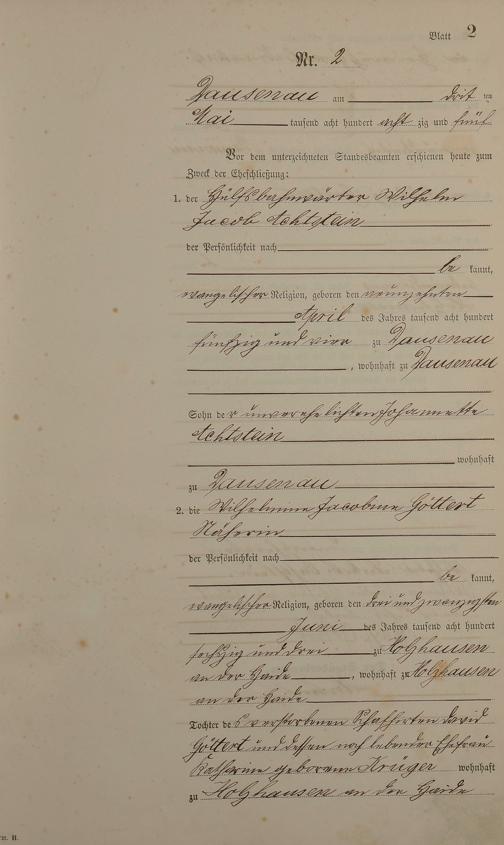 Blatt 2
Nr. 2
Dausenau am drit ten
Mai tausend acht hundert acht zig und fünf
Vor dem unterzeichneten Standesbeamten erschienen heute zum
Zweck der Eheschließung:
1. der Hülfsbahnwärter Wilhelm
Jacob Achtstein
der Persönlichkeit nach
be kannt,
evangelischer Religion, geboren den neunzehnten
April des Jahres tausend acht hundert
fünfzig und vier zu Dausenau
, wohnhaft zu Dausenau
Sohn der unverehelichten Johannette
Achtstein
wohnhaft
zu Dausenau
2. die Wilhelmine Jacobine Göttert
Näherin
der Persönlichkeit nach
be kannt,
evangelischer Religion, geboren den drei und zwanzigsten
Juni des Jahres tausend acht hundert
sechzig und drei zu Holzhausen
an der Haide, wohnhaft zu Holzhausen
an der Haide
Tochter des verstorbenen Schafhirten David
Göttert und dessen noch lebender Ehefrau
Katharine geborene Krüger wohnhaft
zu Holzhausen an der Haide